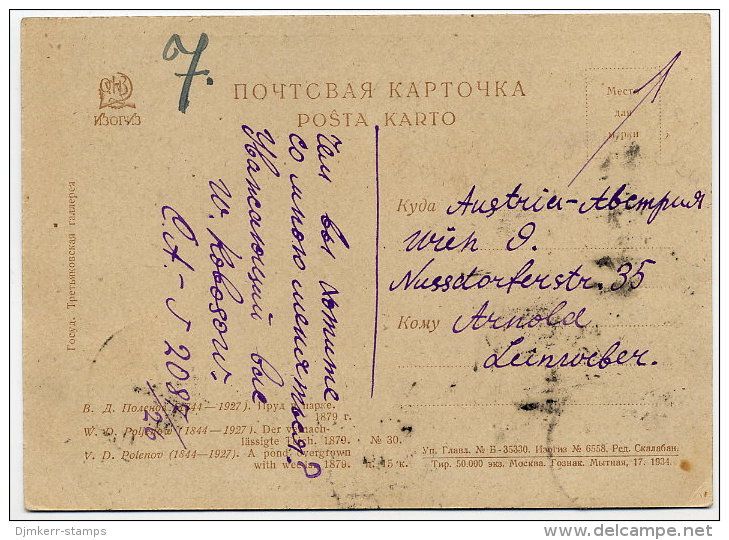 7.
ИЗОГИЗ
ПОЧТОВАЯ КАРТОЧКА
POŜTA KARTO
Место
для
марки
Госуд. Третьяковская галлерея
Чем вы хотите
со мною меняться?
Уважающий вас
W. Kobosow.
C.A. - J 2085
/26
Куда Austria-Австрия
Wien 9.
Nussdorferstr. 35
Кому Arnold
Leinweber.
В. Д. Поленов (1844—1927). Пруд в парке.
1879 г.
W. D. Polenow (1844—1927). Der vernach-
lässigte Teich. 1879. № 30.
V. D. Polenov (1844—1927). A pond overgrown
with weeds. 1879. Ц. 15 к.
Уп. Главл. № Б-35330. Изогиз № 6558. Ред. Скалабан.
Тир. 50.000 экз. Москва. Гознак. Мытная, 17. 1934.
Djmkerr-stamps
©DELCAMPE.NET